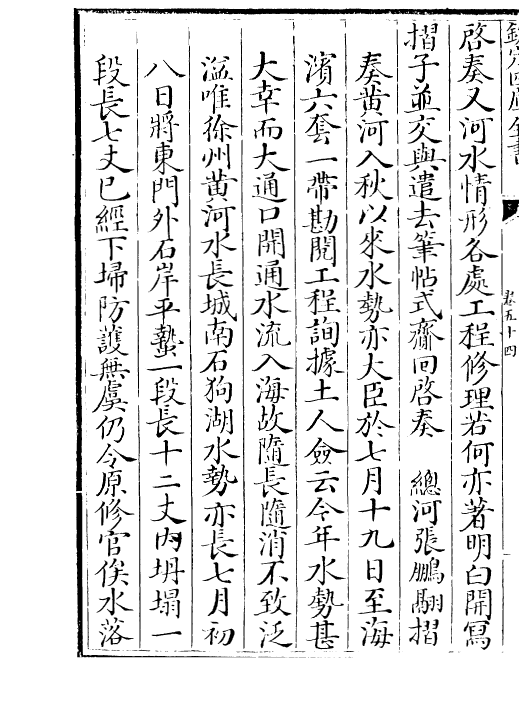 啓奏又河水情形各處工程修理若何亦著明白開寫
摺子並交與遣去筆帖式齎回啓奏　總河張鵬翮摺
奏黄河入秋以來水勢亦大臣於七月十九日至海
濱六套一帶勘閱工程詢據土人僉云今年水勢甚
大幸而大通口開通水流入海故隨長隨消不致泛
溢唯徐州黄河水長城南石狗湖水勢亦長七月初
八日將東門外石岸平蟄一段長十二丈内坍塌一
段長七丈已經下埽防護無虞仍令原修官俟水落
卷五十四